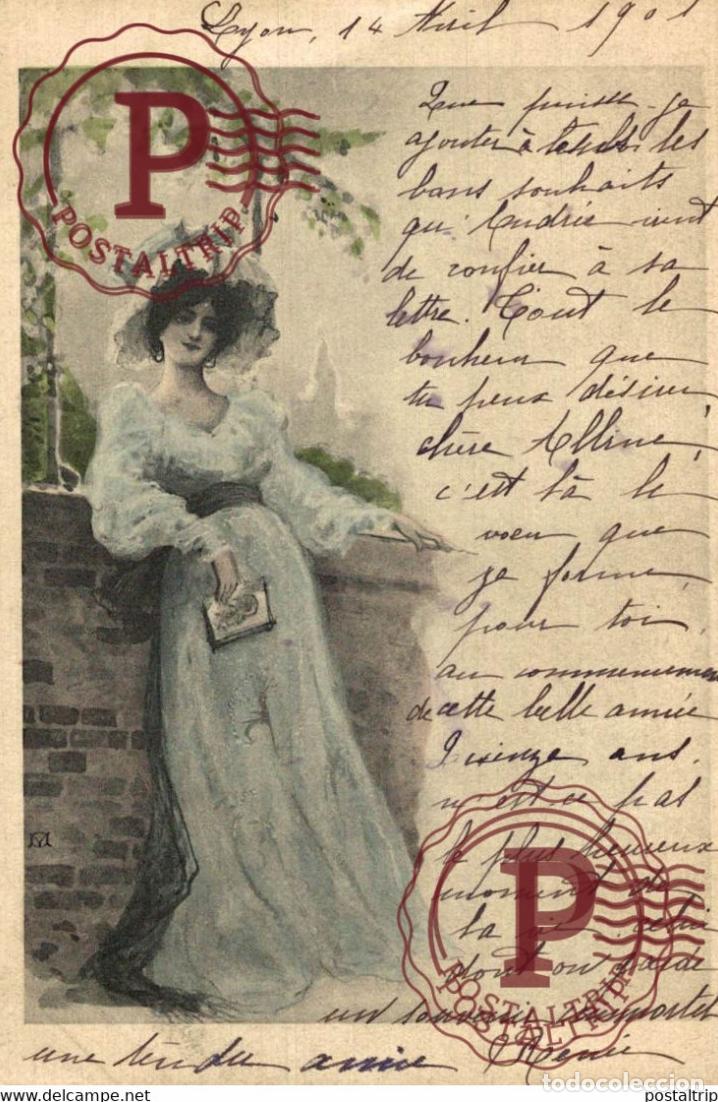 Lyon, 14 Avril 1901
Que puisse-je
ajouter à les
bons souhaits
qu'Andrée vient
de confier à sa
lettre. Tout le
bonheur que
tu peux désirer
chère Alline,
c'est là le
voeu que
je forme
pour toi,
au commencement
de cette belle année
Quinze ans.
n'est ce pas
le plus heureux
moment de
la vie, celui
dont on garde
un souvenir immortel
une tendre amie Renée
P
POSTALTRIP
P
POSTALTRIP
todocoleccion.net
todocoleccion
postaltrip